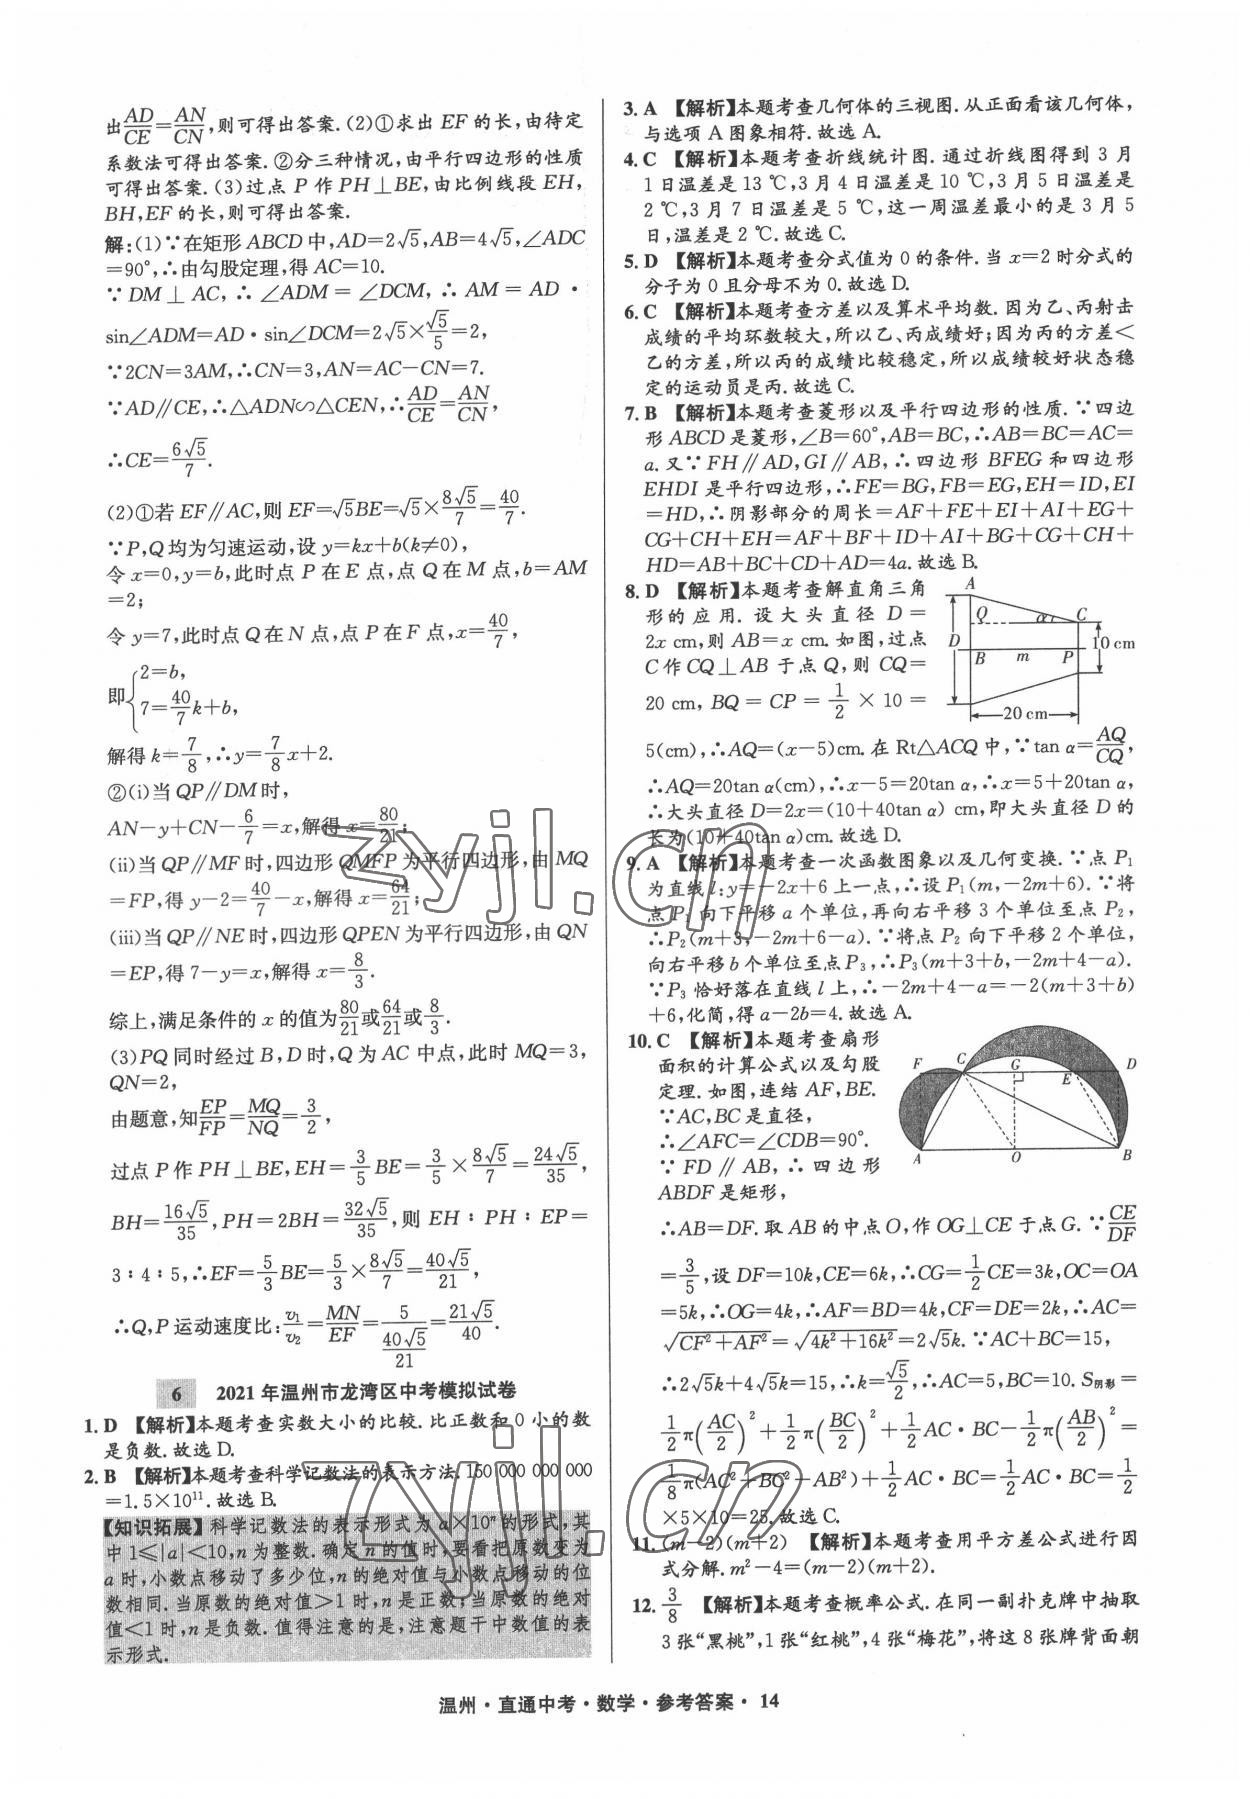 出AD/CE=AN/CN,则可得出答案.(2)①求出 EF 的长,由待定
系数法可得出答案.②分三种情况,由平行四边形的性质
可得出答案.(3)过点 P 作 PH⊥BE,由比例线段 EH,
BH,EF 的长,则可得出答案.
解:(1)∵在矩形 ABCD 中,AD=2√5,AB=4√5,∠ADC
=90°,∴由勾股定理,得 AC=10.
∵ DM ⊥ AC, ∴ ∠ADM = ∠DCM, ∴ AM = AD ·
sin∠ADM=AD·sin∠DCM=2√5×√5/5=2,
∵2CN=3AM,∴CN=3,AN=AC-CN=7.
∵AD∥CE,∴△ADN∽△CEN,∴AD/CE=AN/CN,
∴CE=6√5/7.
(2)①若 EF∥AC,则 EF=√5BE=√5×8√5/7=40/7.
∵P,Q均为匀速运动,设 y=kx+b(k≠0),
令 x=0,y=b,此时点 P 在 E 点,点 Q 在 M 点,b=AM
=2;
令 y=7,此时点 Q 在 N 点,点 P 在 F 点,x=40/7,
即{2=b,
7=40/7k+b,
解得 k=7/8,∴y=7/8x+2.
②(i)当 QP∥DM 时,
AN-y+CN-6/7=x,解得 x=80/21;
(ii)当 QP∥MF 时,四边形 QMFP 为平行四边形,由 MQ
=FP,得 y-2=40/7-x,解得 x=64/21;
(iii)当 QP∥NE 时,四边形 QPEN 为平行四边形,由 QN
=EP,得 7-y=x,解得 x=8/3.
综上,满足条件的 x 的值为80/21或64/21或8/3.
(3)PQ 同时经过 B,D 时,Q 为 AC 中点,此时 MQ=3,
QN=2,
由题意,知EP/FP=MQ/NQ=3/2,
过点 P 作 PH⊥BE,EH=3/5BE=3/5×8√5/7=24√5/35,
BH=16√5/35,PH=2BH=32√5/35,则 EH∶PH∶EP=
3∶4∶5,∴EF=5/3BE=5/3×8√5/7=40√5/21,
∴Q,P 运动速度比:v₁/v₂=MN/EF=5/(40√5/21)=21√5/40.
6 2021 年温州市龙湾区中考模拟试卷
1. D 【解析】本题考查实数大小的比较.比正数和 0 小的数
是负数.故选 D.
2. B 【解析】本题考查科学记数法的表示方法.150 000 000 000
=1.5×10¹¹.故选 B.
【知识拓展】科学记数法的表示形式为 a×10ⁿ 的形式,其
中 1≤|a|<10,n 为整数.确定 n 的值时,要看把原数变为
a 时,小数点移动了多少位,n 的绝对值与小数点移动的位
数相同.当原数的绝对值>1 时,n 是正数;当原数的绝对
值<1 时,n 是负数.值得注意的是,注意题干中数值的表
示形式.
3. A 【解析】本题考查几何体的三视图.从正面看该几何体,
与选项 A 图象相符.故选 A.
4. C 【解析】本题考查折线统计图.通过折线图得到 3 月
1 日温差是 13 ℃,3 月 4 日温差是 10 ℃,3 月 5 日温差是
2 ℃,3 月 7 日温差是 5 ℃,这一周温差最小的是 3 月 5
日,温差是 2 ℃.故选 C.
5. D 【解析】本题考查分式值为 0 的条件.当 x=2 时分式的
分子为 0 且分母不为 0.故选 D.
6. C 【解析】本题考查方差以及算术平均数.因为乙、丙射击
成绩的平均环数较大,所以乙、丙成绩好;因为丙的方差<
乙的方差,所以丙的成绩比较稳定,所以成绩较好状态稳
定的运动员是丙.故选 C.
7. B 【解析】本题考查菱形以及平行四边形的性质.∵四边
形 ABCD 是菱形,∠B=60°,AB=BC,∴AB=BC=AC=
a.又∵ FH∥AD,GI∥AB,∴四边形 BFEG 和四边形
EHDI 是平行四边形,∴FE=BG,FB=EG,EH=ID,EI
=HD,∴阴影部分的周长=AF+FE+EI+AI+EG+
CG+CH+EH=AF+BF+ID+AI+BG+CG+CH+
HD=AB+BC+CD+AD=4a.故选 B.
8. D 【解析】本题考查解直角三角
形的应用.设大头直径 D=
2x cm,则 AB=x cm.如图,过点
C 作 CQ⊥AB 于点 Q,则 CQ=
20 cm,BQ=CP=1/2×10=
A
Q
α
C
D
B
m
P
10 cm
20 cm
5(cm),∴AQ=(x-5)cm.在 Rt△ACQ 中,∵tan α=AQ/CQ,
∴AQ=20tan α(cm),∴x-5=20tan α,∴x=5+20tan α,
∴大头直径 D=2x=(10+40tan α) cm,即大头直径 D 的
长为(10+40tan α)cm.故选 D.
9. A 【解析】本题考查一次函数图象以及几何变换.∵点 P₁
为直线 l:y=-2x+6 上一点,∴设 P₁(m,-2m+6).∵将
点 P₁ 向下平移 a 个单位,再向右平移 3 个单位至点 P₂,
∴P₂(m+3,-2m+6-a).∵将点 P₂ 向下平移 2 个单位,
向右平移 b 个单位至点 P₃,∴P₃(m+3+b,-2m+4-a).
∵P₃ 恰好落在直线 l 上,∴-2m+4-a=-2(m+3+b)
+6,化简,得 a-2b=4.故选 A.
10. C 【解析】本题考查扇形
面积的计算公式以及勾股
定理.如图,连结 AF,BE.
∵AC,BC 是直径,
∴∠AFC=∠CDB=90°.
∵ FD∥AB,∴四边形
ABDF 是矩形,
F
C
G
E
D
A
O
B
∴AB=DF.取 AB 的中点 O,作 OG⊥CE 于点 G.∵CE/DF
=3/5,设 DF=10k,CE=6k,∴CG=1/2CE=3k,OC=OA
=5k,∴OG=4k,∴AF=BD=4k,CF=DE=2k,∴AC=
√(CF²+AF²)=√(4k²+16k²)=2√5k.∵AC+BC=15,
∴2√5k+4√5k=15,∴k=√5/2,∴AC=5,BC=10.S阴影=
1/2π(AC/2)²+1/2π(BC/2)²+1/2AC·BC-1/2π(AB/2)²=
1/8π(AC²+BC²-AB²)+1/2AC·BC=1/2AC·BC=1/2
×5×10=25.故选 C.
11. (m-2)(m+2) 【解析】本题考查用平方差公式进行因
式分解.m²-4=(m-2)(m+2).
12. 3/8 【解析】本题考查概率公式.在同一副扑克牌中抽取
3 张“黑桃”,1 张“红桃”,4 张“梅花”,将这 8 张牌背面朝
温州·直通中考·数学·参考答案· 14
zyjl.cn
zyjl.cn